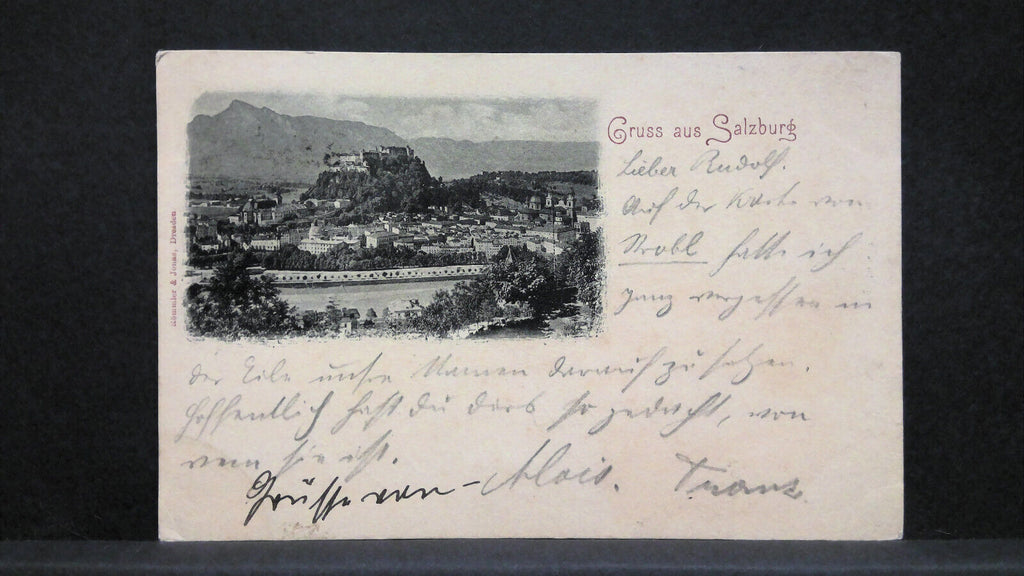 Gruss aus Salzburg
Römmler & Jonas, Dresden
Lieber Rudolf.
Auf der Karte von
Strobl hatte ich
ganz vergessen in
der Eile unsre Namen darauf zu setzen.
Hoffentlich hast du dirs so gedacht, von
wem sie ist.
Grüsse von - Alois. Franz